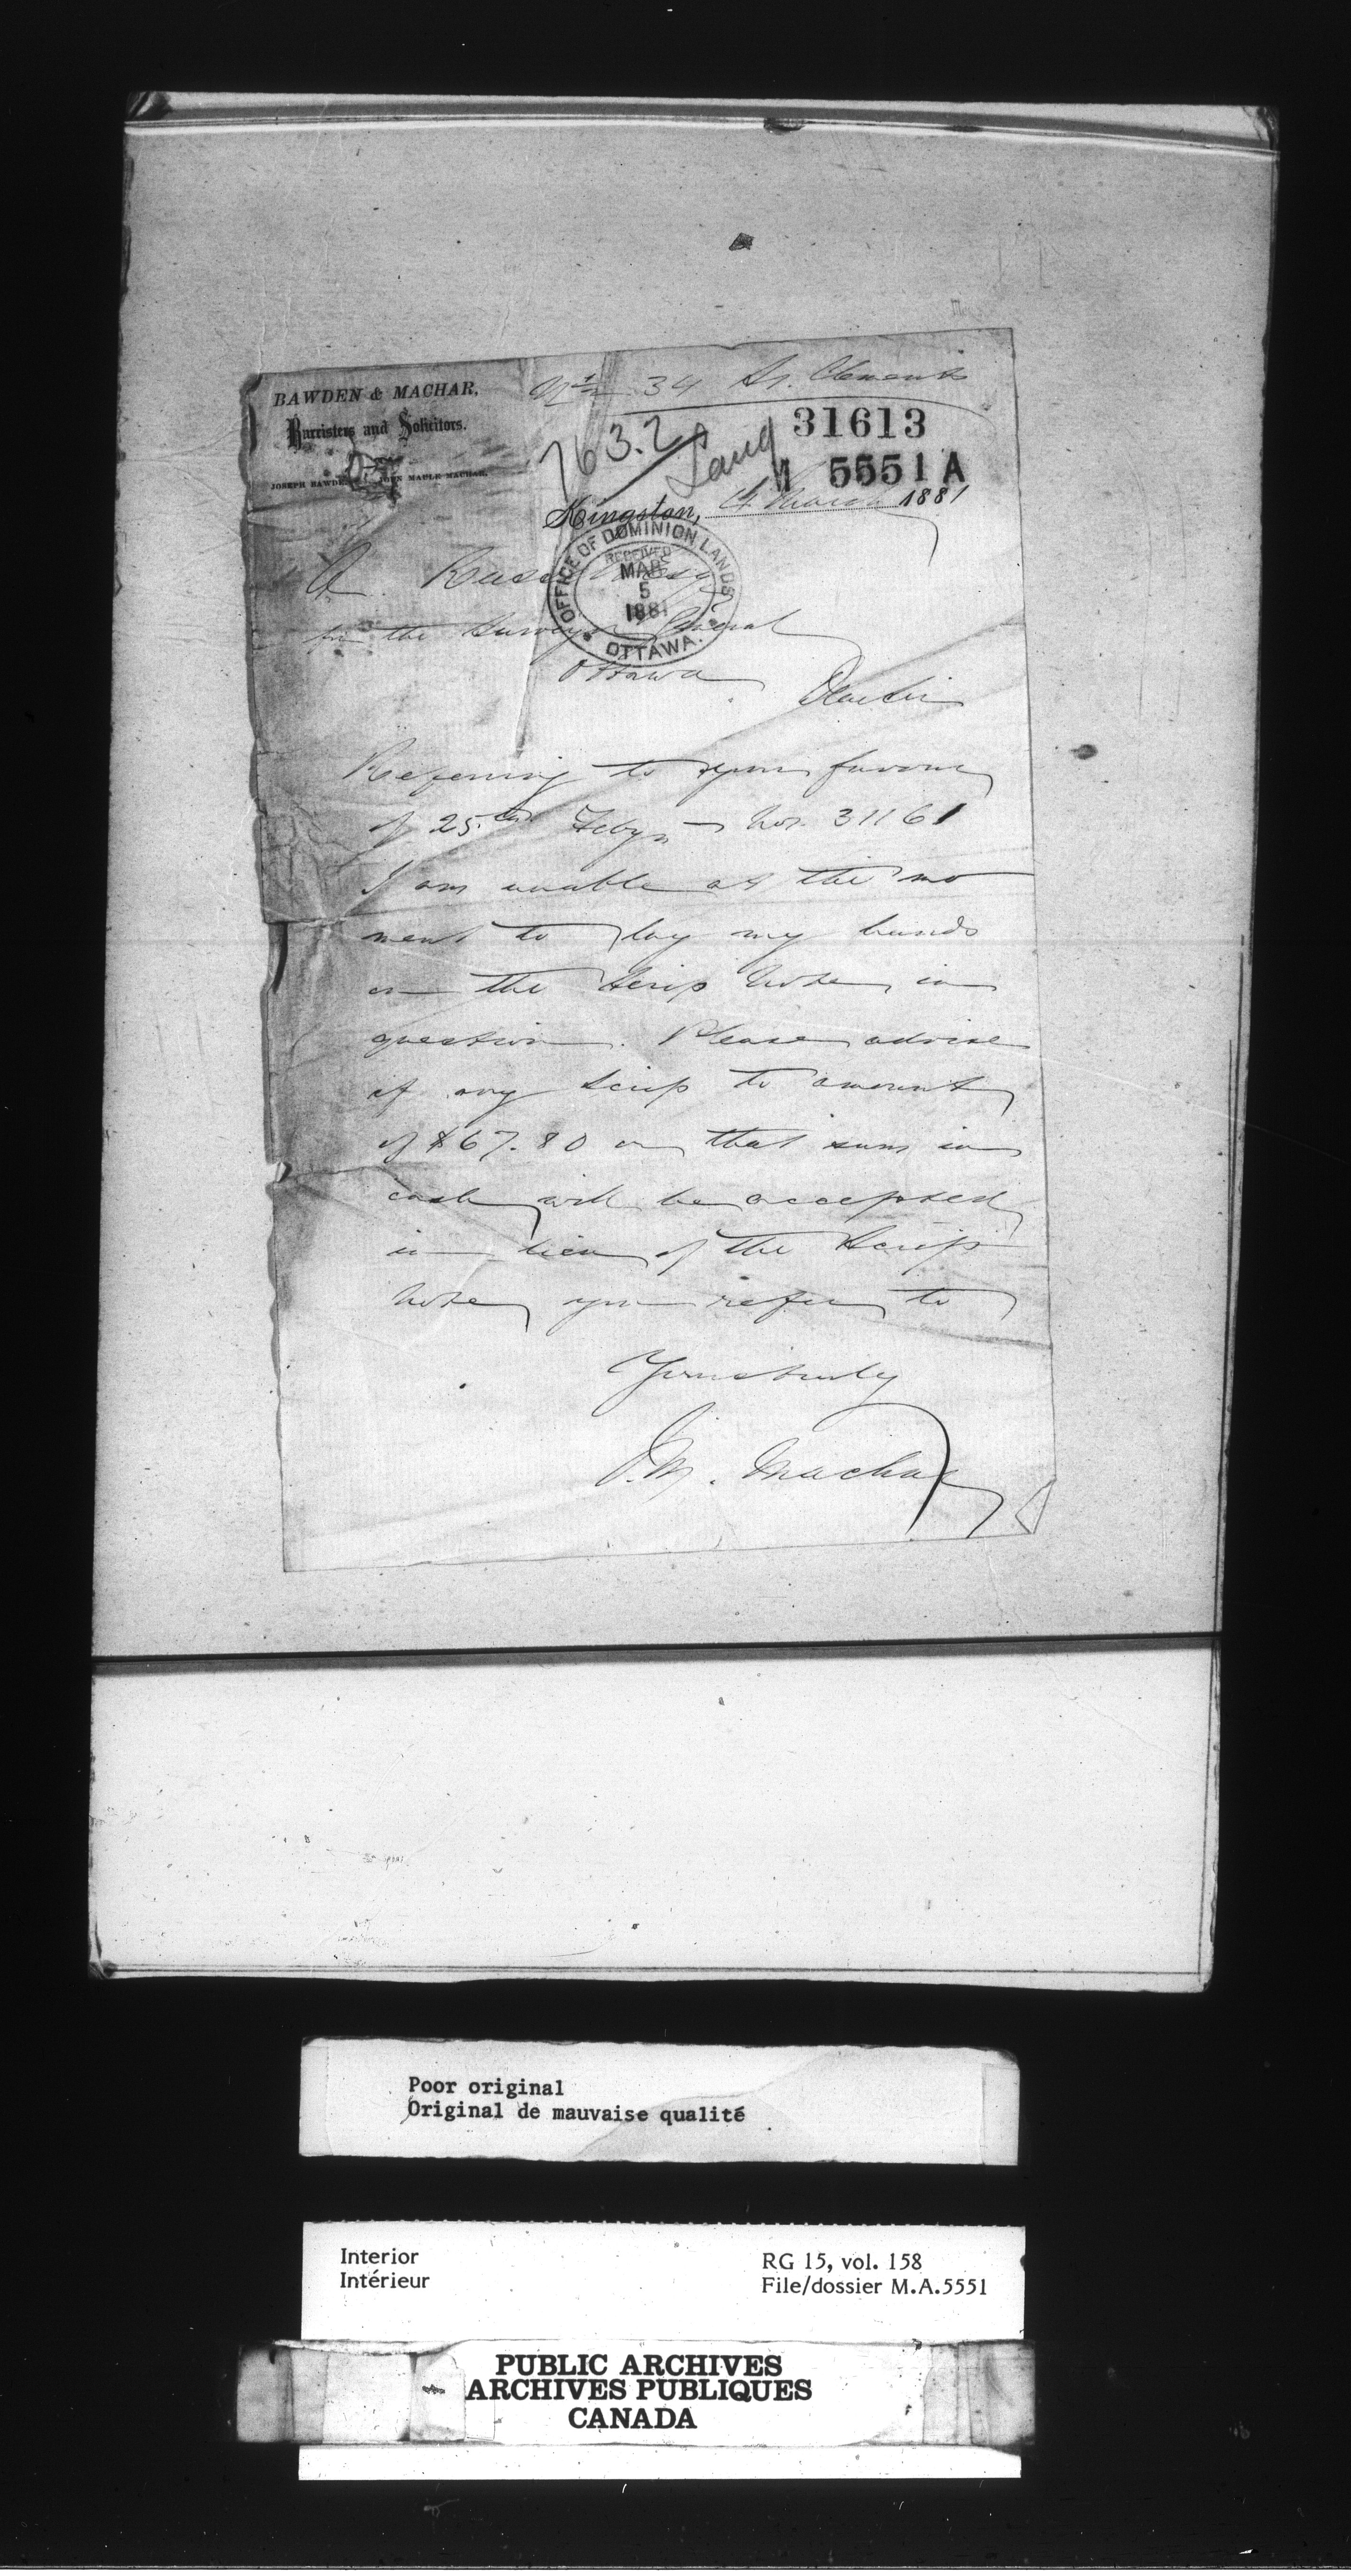 BAWDEN & MACHAR,
Barristers and Solicitors.
JOSEPH BAWDEN JOHN MAULE MACHAR.
34 St. Clements
763.2
31613
5551 A
Kingston, 4 March 1881
OFFICE OF DOMINION LANDS
RECEIVED
MAR
5
1881
OTTAWA.
A. Russell Esq
for the Surveyor General
Ottawa
Dear Sir
Referring to your favour
of 25th Feby - No. 31161
I am unable at the mo
ment to lay my hands
on the Scrip Note in
question. Please advise
if any Scrip to amount
of $67.80 or that sum in
cash will be accepted
in lieu of the Scrip
Note you refer to
Yours truly
J.M. Machar
Poor original
Original de mauvaise qualité
Interior
Intérieur
RG 15, vol. 158
File/dossier M.A.5551
PUBLIC ARCHIVES
ARCHIVES PUBLIQUES
CANADA